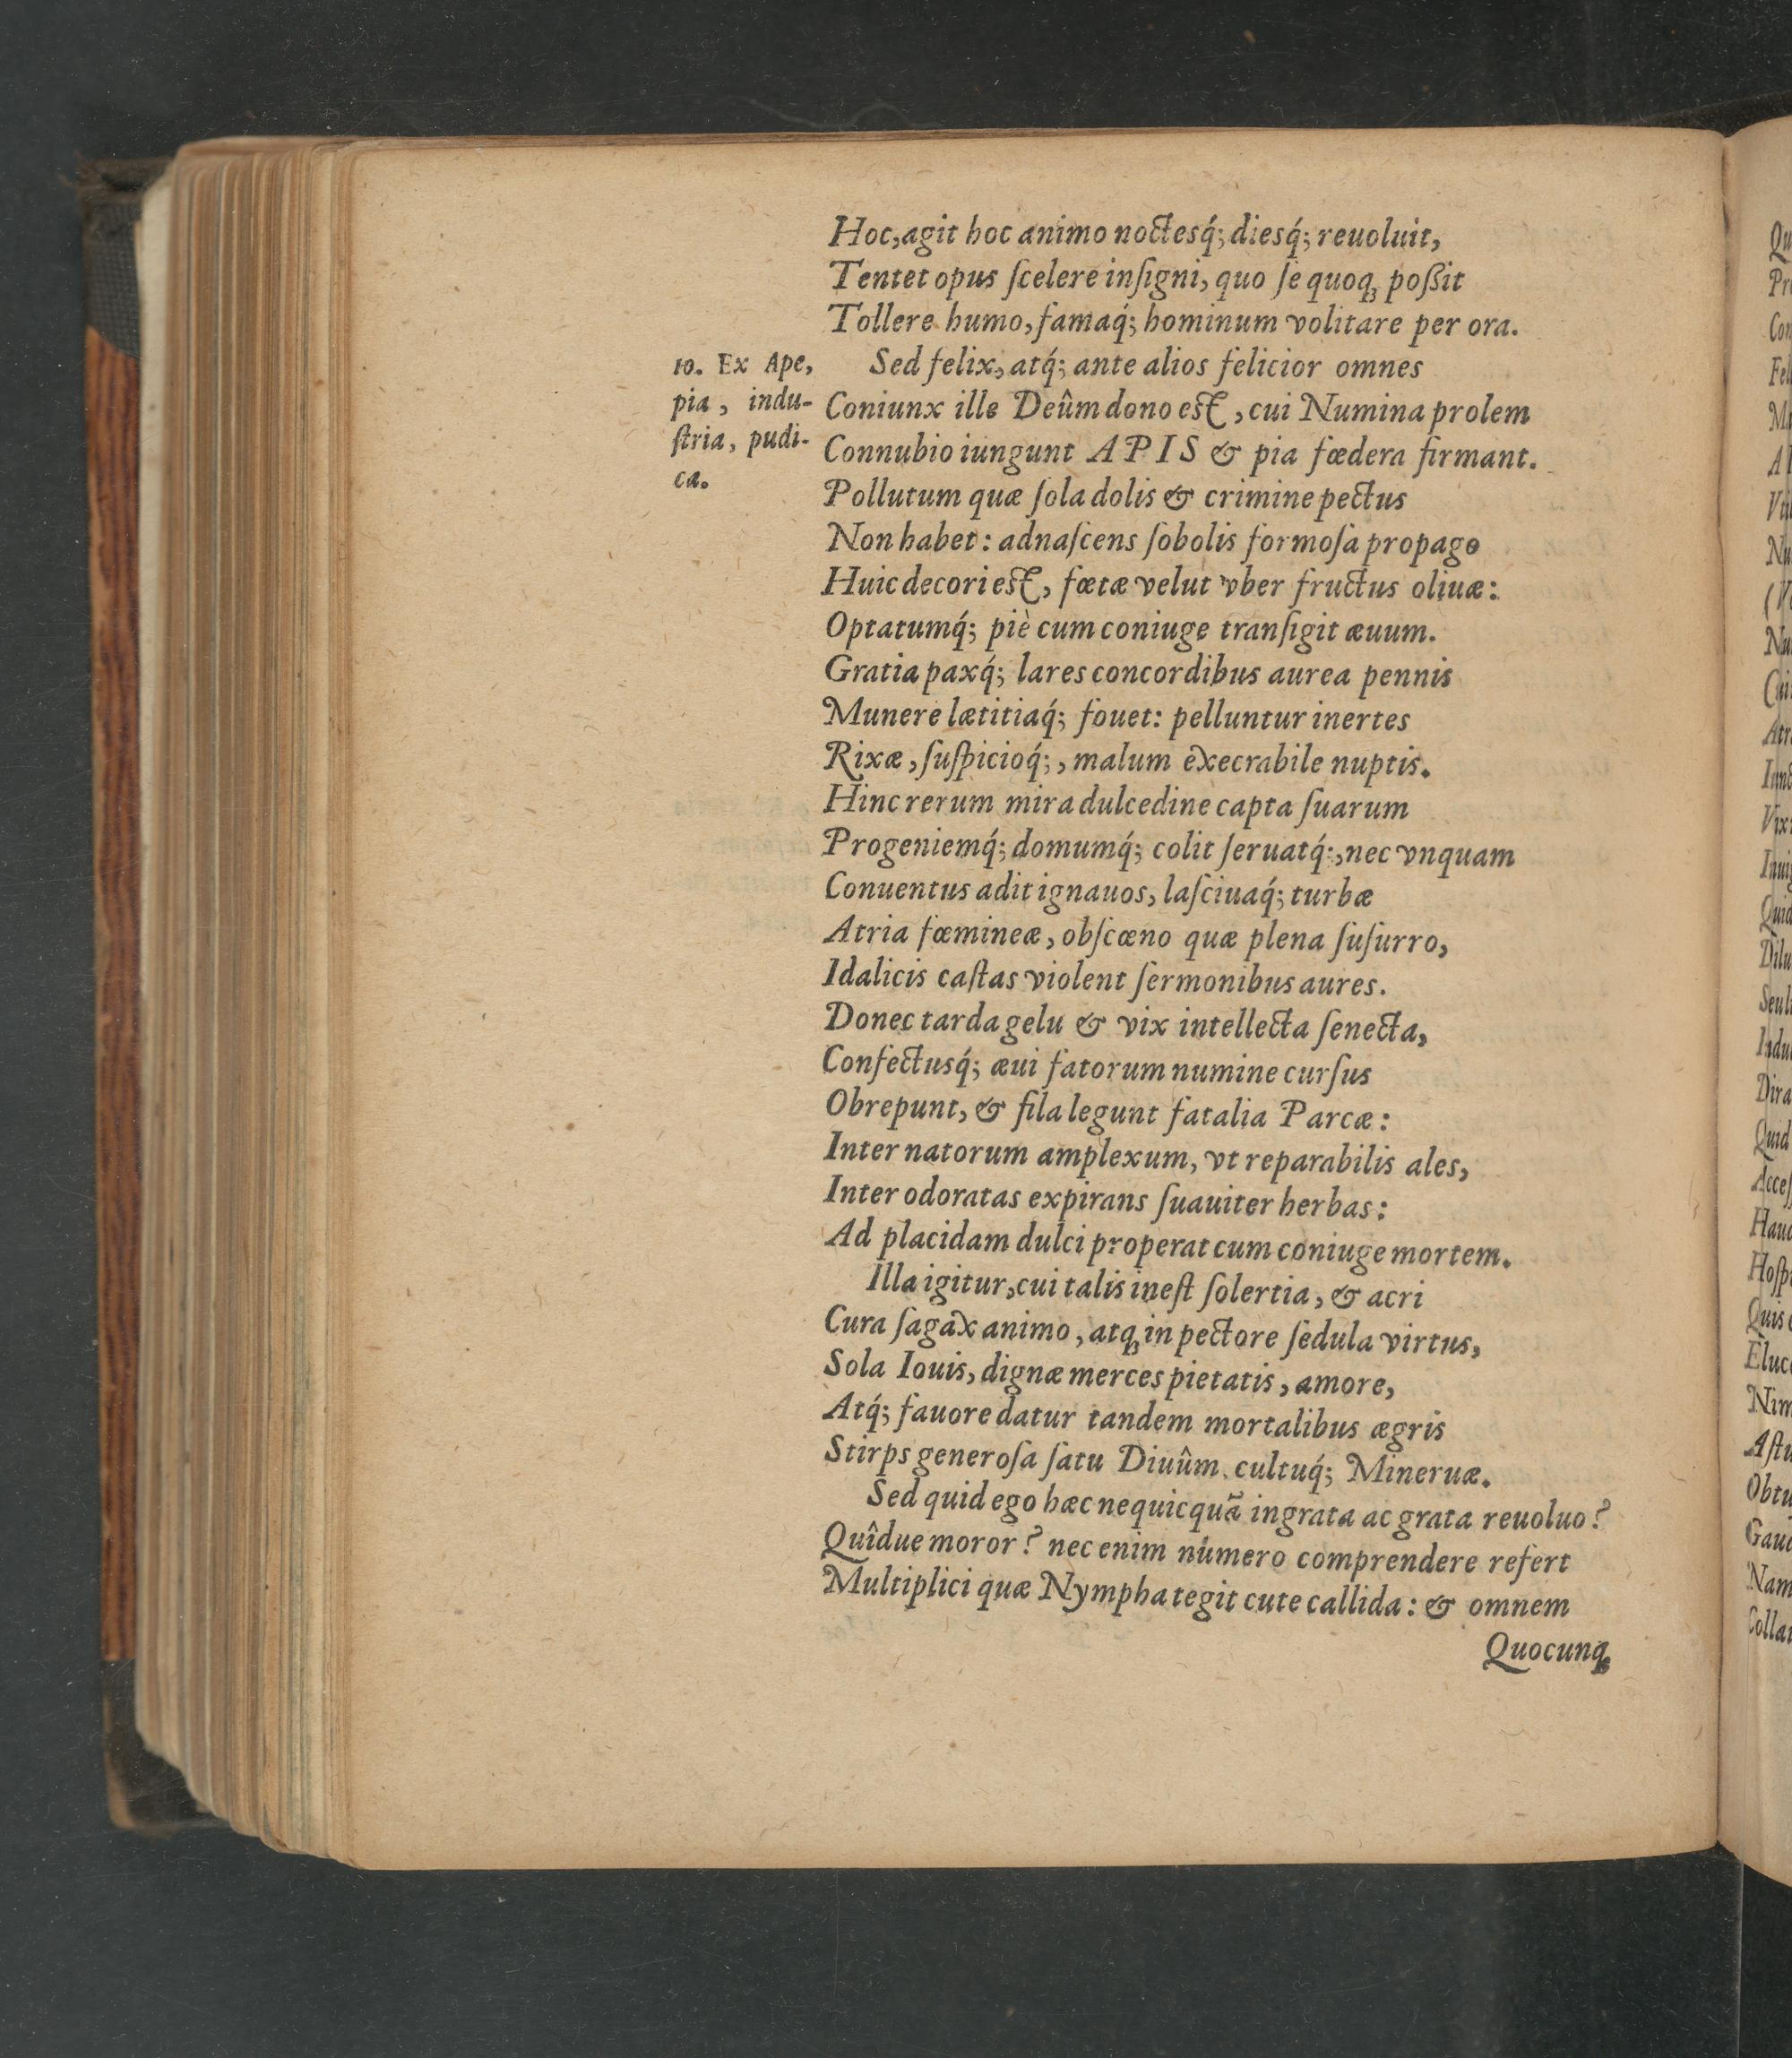 Hoc, agit hoc animo noctesq́; diesq́; reuoluit,
Tentet opus ſcelere inſigni, quo ſe quoqꝫ poßit
Tollere humo, famaq́; hominum volitare per ora.
10. Ex Ape,
pia, indu-
ſtria, pudi-
ca.
Sed felix, atq́; ante alios felicior omnes
Coniunx ille Deûm dono est, cui Numina prolem
Connubio iungunt APIS & pia fœdera firmant.
Pollutum quæ ſola dolis & crimine pectus
Non habet: adnaſcens ſobolis formoſa propago
Huic decori est, fœtæ velut vber fructus oliuæ:
Optatumq́; piè cum coniuge tranſigit æuum.
Gratia paxq́; lares concordibus aurea pennis
Munere lætitiaq́; fouet: pelluntur inertes
Rixæ, ſuſpicioq́;, malum execrabile nuptis.
Hinc rerum mira dulcedine capta ſuarum
Progeniemq́; domumq́; colit ſeruatq́:, nec vnquam
Conuentus adit ignauos, laſciuaq́; turbæ
Atria fœmineæ, obſcœno quæ plena ſuſurro,
Idalicis caſtas violent ſermonibus aures.
Donec tarda gelu & vix intellecta ſenecta,
Confectusq́; æui fatorum numine curſus
Obrepunt, & fila legunt fatalia Parcæ:
Inter natorum amplexum, vt reparabilis ales,
Inter odoratas expirans ſuauiter herbas:
Ad placidam dulci properat cum coniuge mortem.
Illa igitur, cui talis ineſt ſolertia, & acri
Cura ſagax animo, atqꝫ in pectore ſedula virtus,
Sola Iouis, dignæ merces pietatis, amore,
Atq́; fauore datur tandem mortalibus ægris
Stirps generoſa ſatu Diuûm cultuq́; Mineruæ.
Sed quid ego hæc nequicquã ingrata ac grata reuoluo?
Quîdue moror? nec enim numero comprendere refert
Multiplici quæ Nympha tegit cute callida: & omnem
Quocunqꝫ